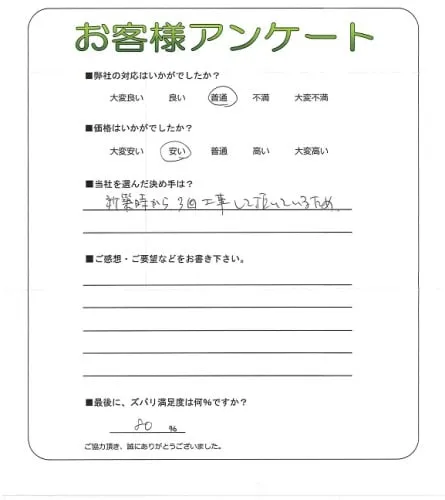 お客様アンケート
■弊社の対応はいかがでしたか?
大変良い 良い 普通 不満 大変不満
■価格はいかがでしたか?
大変安い 安い 普通 高い 大変高い
■当社を選んだ決め手は?
新築時から3回工事して頂いているため、
■ご感想・ご要望などをお書き下さい。
■最後に、ズバリ満足度は何%ですか?
80 %
ご協力頂き、誠にありがとうございました。